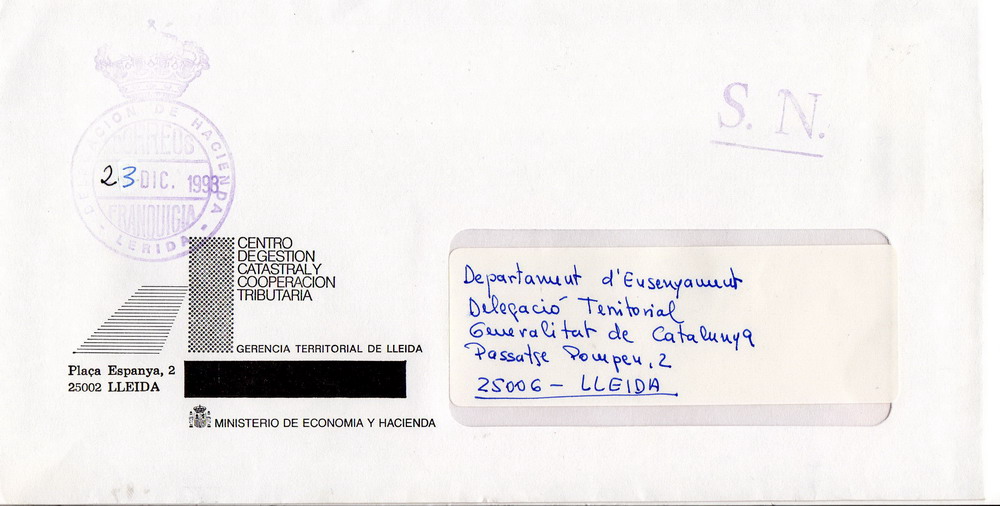 DELEGACION DE HACIENDA
CORREOS
23 DIC. 1993
FRANQUICIA
LERIDA
S. N.
CENTRO
DE GESTION
CATASTRAL Y
COOPERACION
TRIBUTARIA
GERENCIA TERRITORIAL DE LLEIDA
Plaça Espanya, 2
25002 LLEIDA
MINISTERIO DE ECONOMIA Y HACIENDA
Departament d'Ensenyament
Delegació Territorial
Generalitat de Catalunya
Passatge Pompeu, 2
25006 - LLEIDA